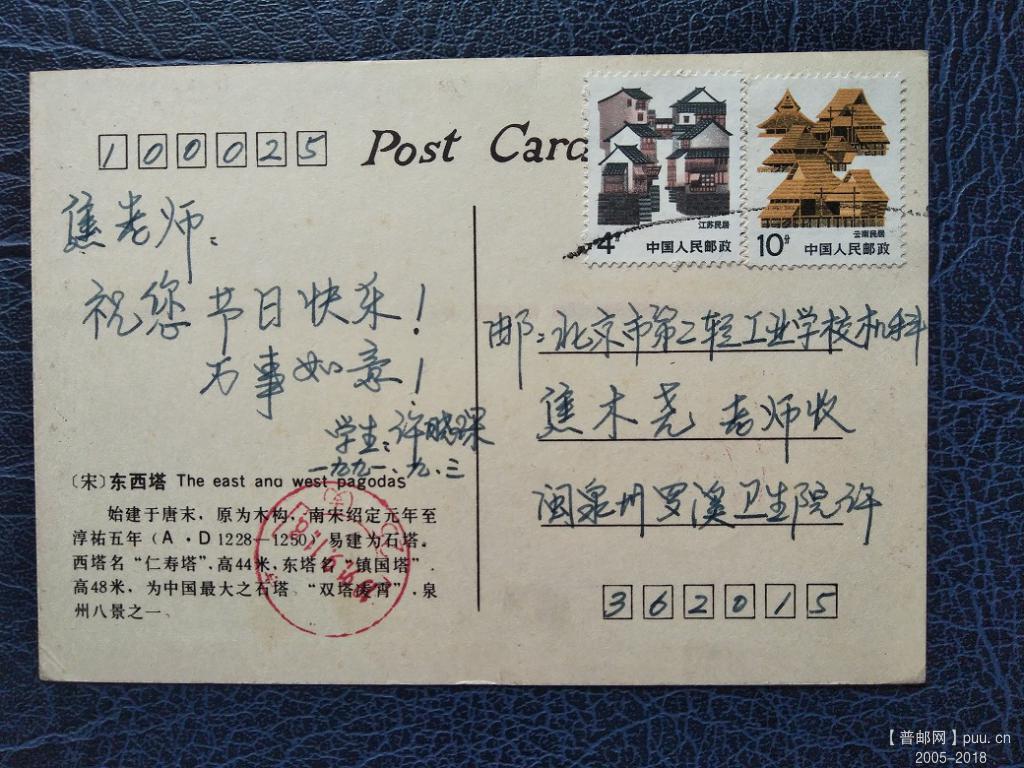 100025
Post Card
江苏民居
4分 中国人民邮政
云南民居
10分 中国人民邮政
焦老师:
祝您节日快乐!
万事如意!
学生:许晓琛
一九九一.九.三
邮:北京市第二轻工业学校机科
焦木尧 老师收
闽泉州罗溪卫生院许
362015
〔宋〕东西塔 The east and west pagodas
始建于唐末,原为木构,南宋绍定元年至
淳祐五年(A·D 1228—1250)易建为石塔。
西塔名“仁寿塔”,高44米,东塔名“镇国塔”
高48米,为中国最大之石塔。“双塔凌霄”,泉
州八景之一。
【普邮网】puu.cn
2005-2018